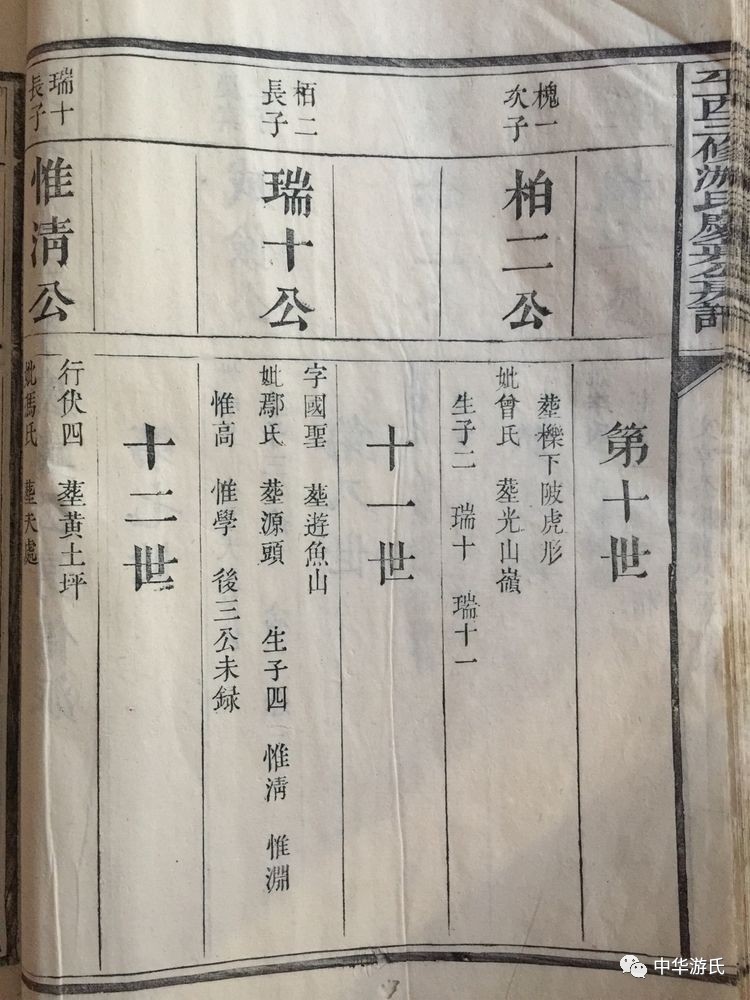 修游氏慶公房
第十世
槐一
次子
柏二公
塟櫟下陂虎形
妣曾氏 塟光山嶺
生子二 瑞十 瑞十一
十一世
栢二
長子
瑞十公
字國聖 塟遊魚山
妣鄢氏 塟源頭 生子四 惟淸 惟淵
惟高 惟學 後三公未録
十二世
瑞十
長子
惟淸公
行伏四 塟黃土坪
妣馮氏 塟失處
中华游氏